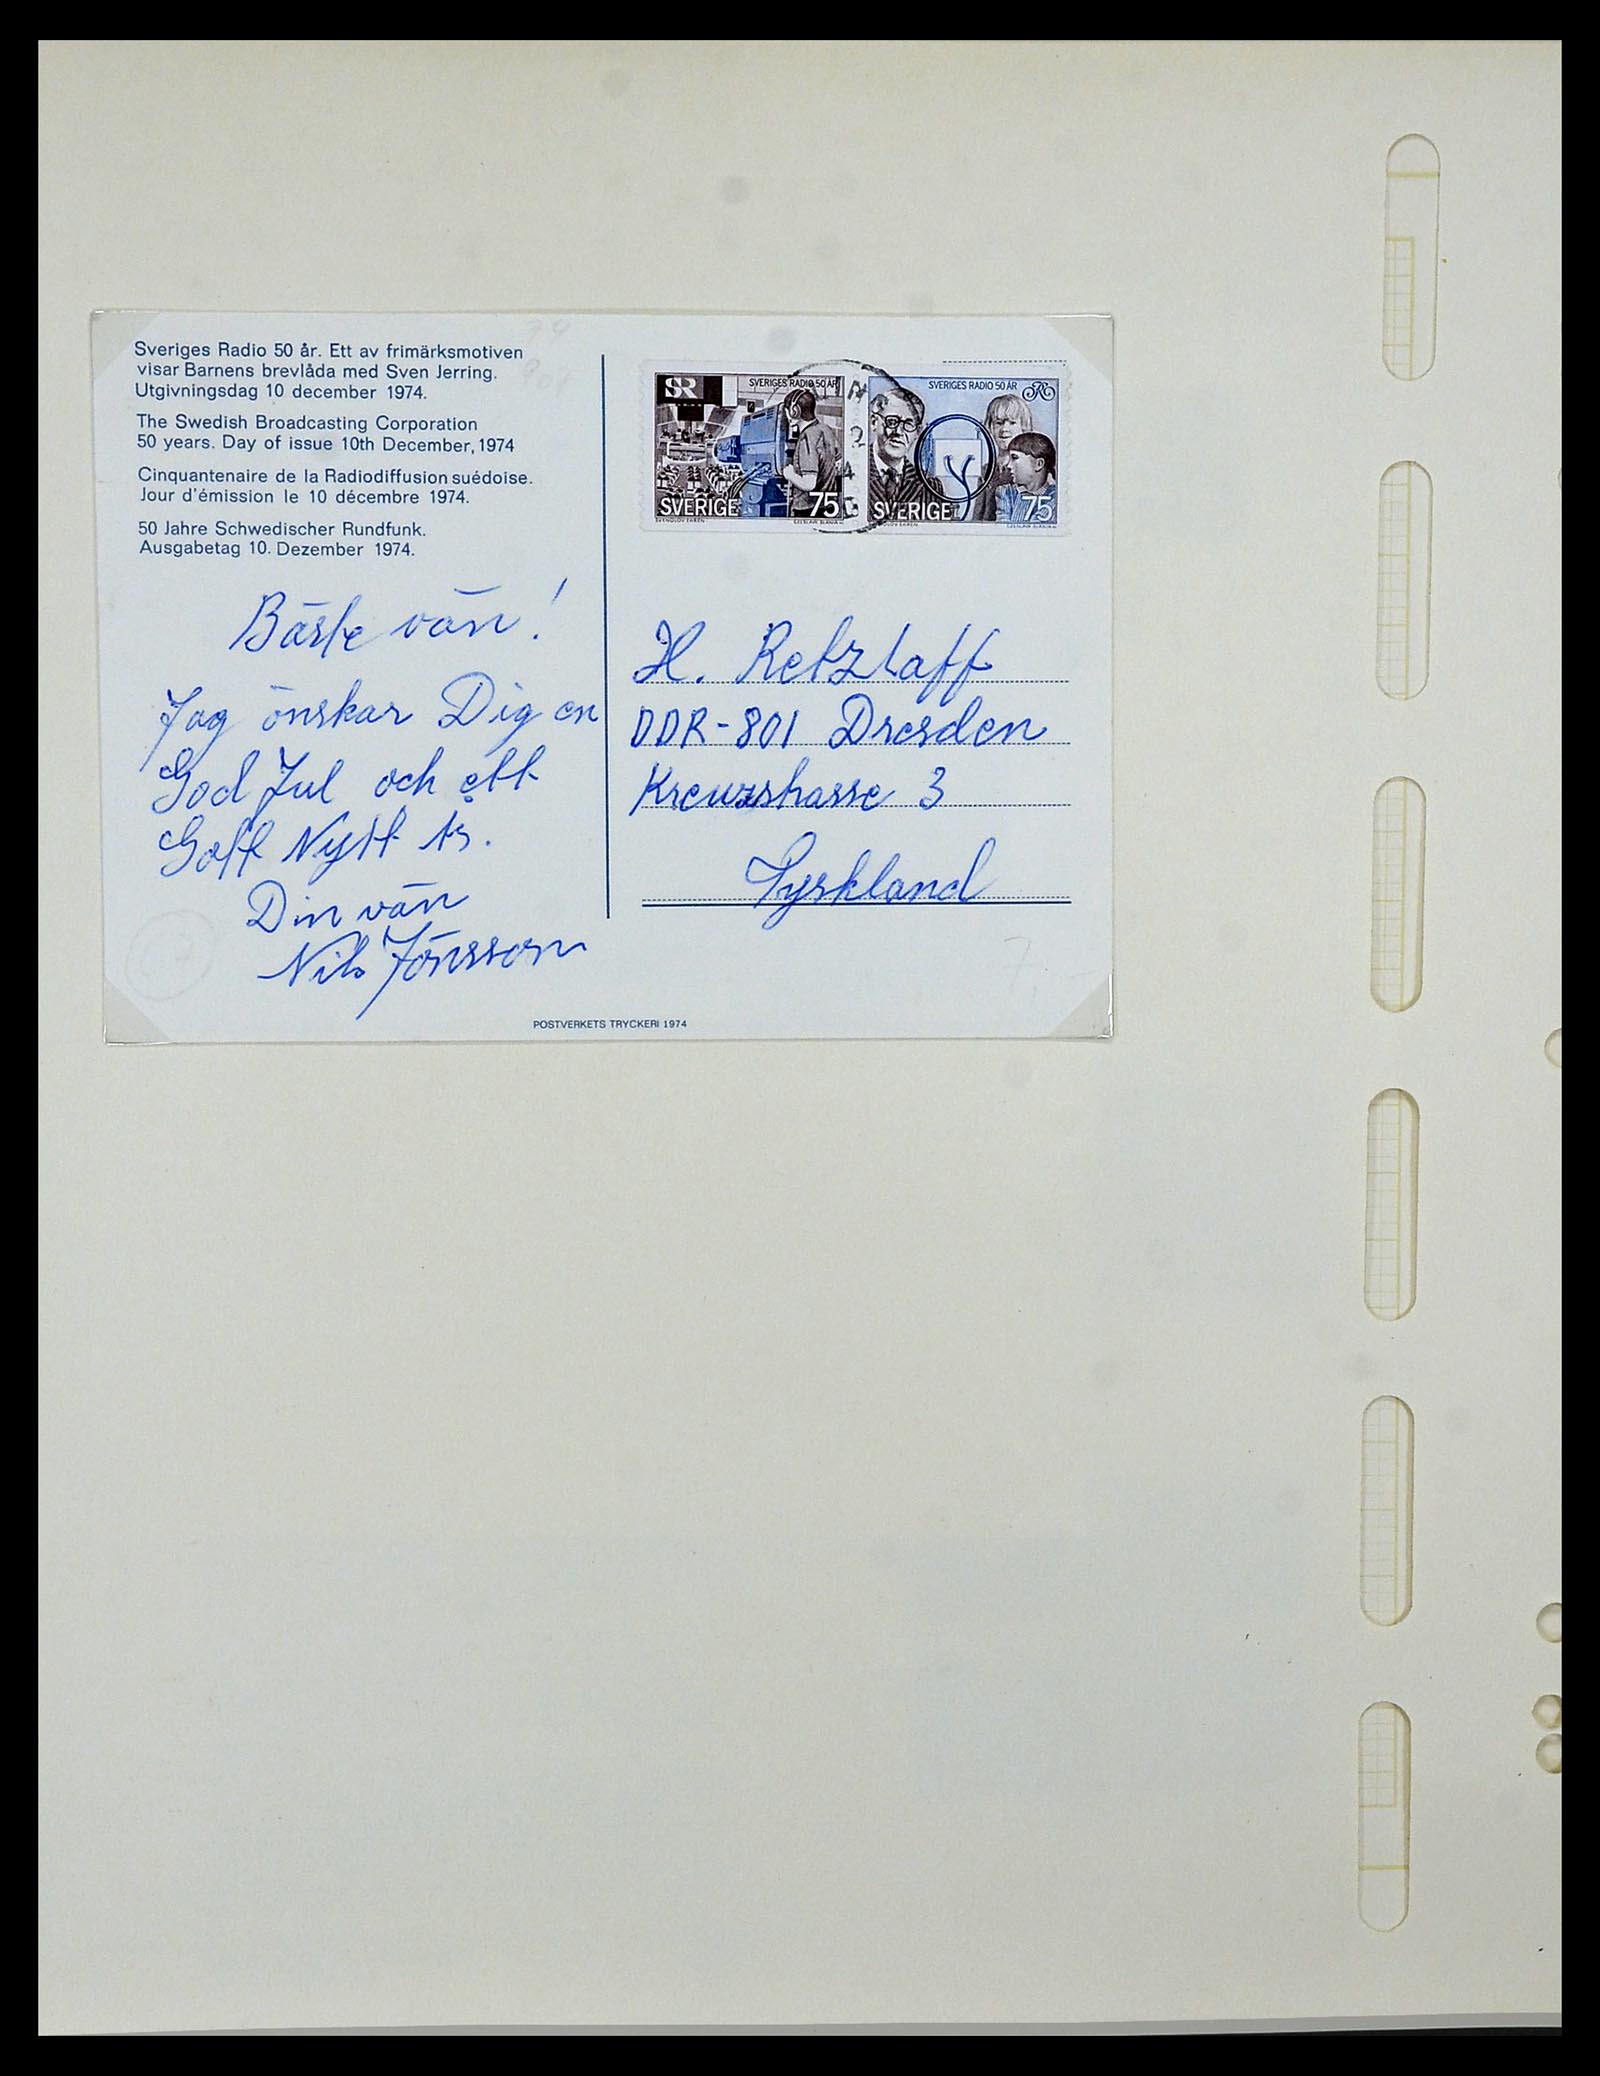 Sveriges Radio 50 år. Ett av frimärksmotiven
visar Barnens brevlåda med Sven Jerring.
Utgivningsdag 10 december 1974.
The Swedish Broadcasting Corporation
50 years. Day of issue 10th December, 1974
Cinquantenaire de la Radiodiffusion suédoise.
Jour d'émission le 10 décembre 1974.
50 Jahre Schwedischer Rundfunk.
Ausgabetag 10. Dezember 1974.
Bäste vän!
Jag önskar Dig en
God Jul och ett
Gott Nytt år.
Din vän
Nils Jönsson
SR SVERIGES RADIO 50 ÅR
SVERIGE 75
SVENOLOV EHRÉN CZESLAW SLANIA SC
SVERIGES RADIO 50 ÅR
SVERIGE 75
CZESLAW SLANIA SC
H. Retzlaff
DDR-801 Dresden
Kreuzstrasse 3
Tyskland
7
POSTVERKETS TRYCKERI 1974